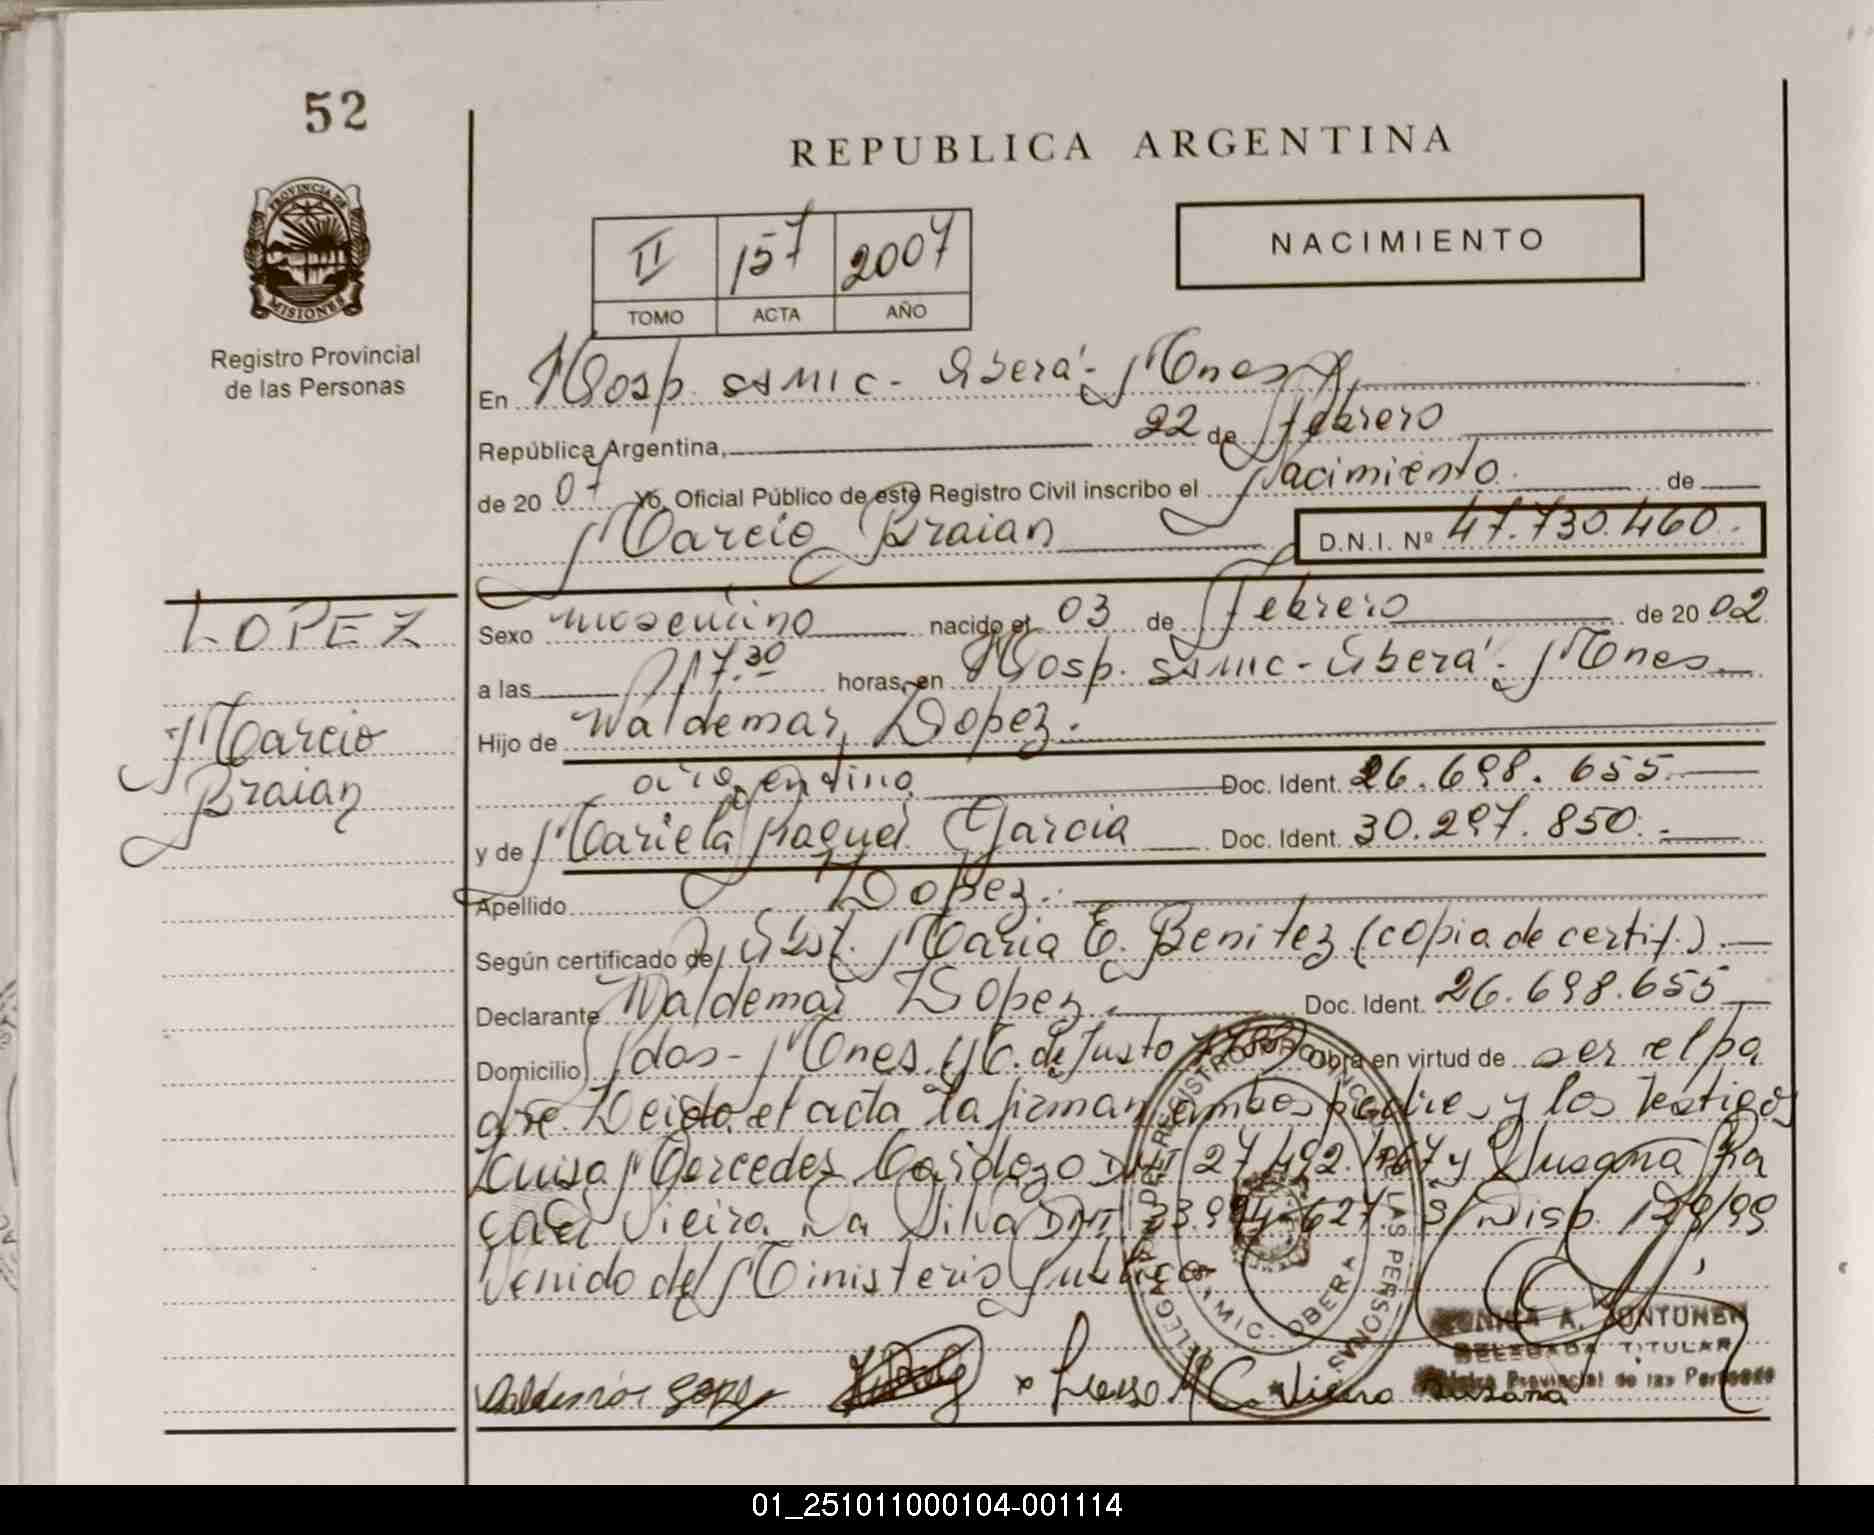 52
REPUBLICA ARGENTINA
PROVINCIA DE
MISIONES
Registro Provincial
de las Personas
II 157 2007
TOMO ACTA AÑO
NACIMIENTO
En Hosp. SAMIC - Oberá - Mnes
República Argentina, 22 de febrero
de 2007 Yo, Oficial Público de este Registro Civil inscribo el Nacimiento de
Marcio Braian D.N.I. Nº 47.730.460.
LOPEZ
Marcio
Braian
Sexo masculino nacido el 03 de febrero de 2002
a las 17.30 horas, en Hosp. SAMIC - Oberá - Mnes.
Hijo de Waldemar Lopez.
argentino Doc. Ident. 26.698.655.
y de Mariela Raquel Garcia Doc. Ident. 30.297.850.
Apellido Lopez.
Según certificado de Obst. Maria E. Benitez (copia de certif.).
Declarante Waldemar Lopez. Doc. Ident. 26.698.655
Domicilio Pdas - Mnes. de Justo Obra en virtud de ser el pa
dre. Leida el acta la firman ambos padres y los testigos
Luisa Mercedes Cardozo DNI 27.492. y Susana Gra
ciel Vieira Da Silva DNI S/Disp. 129/99
venido del Ministerio
DELEGADA TITULAR
Provincial de las Personas
SAMIC. OBERA
01_251011000104-001114